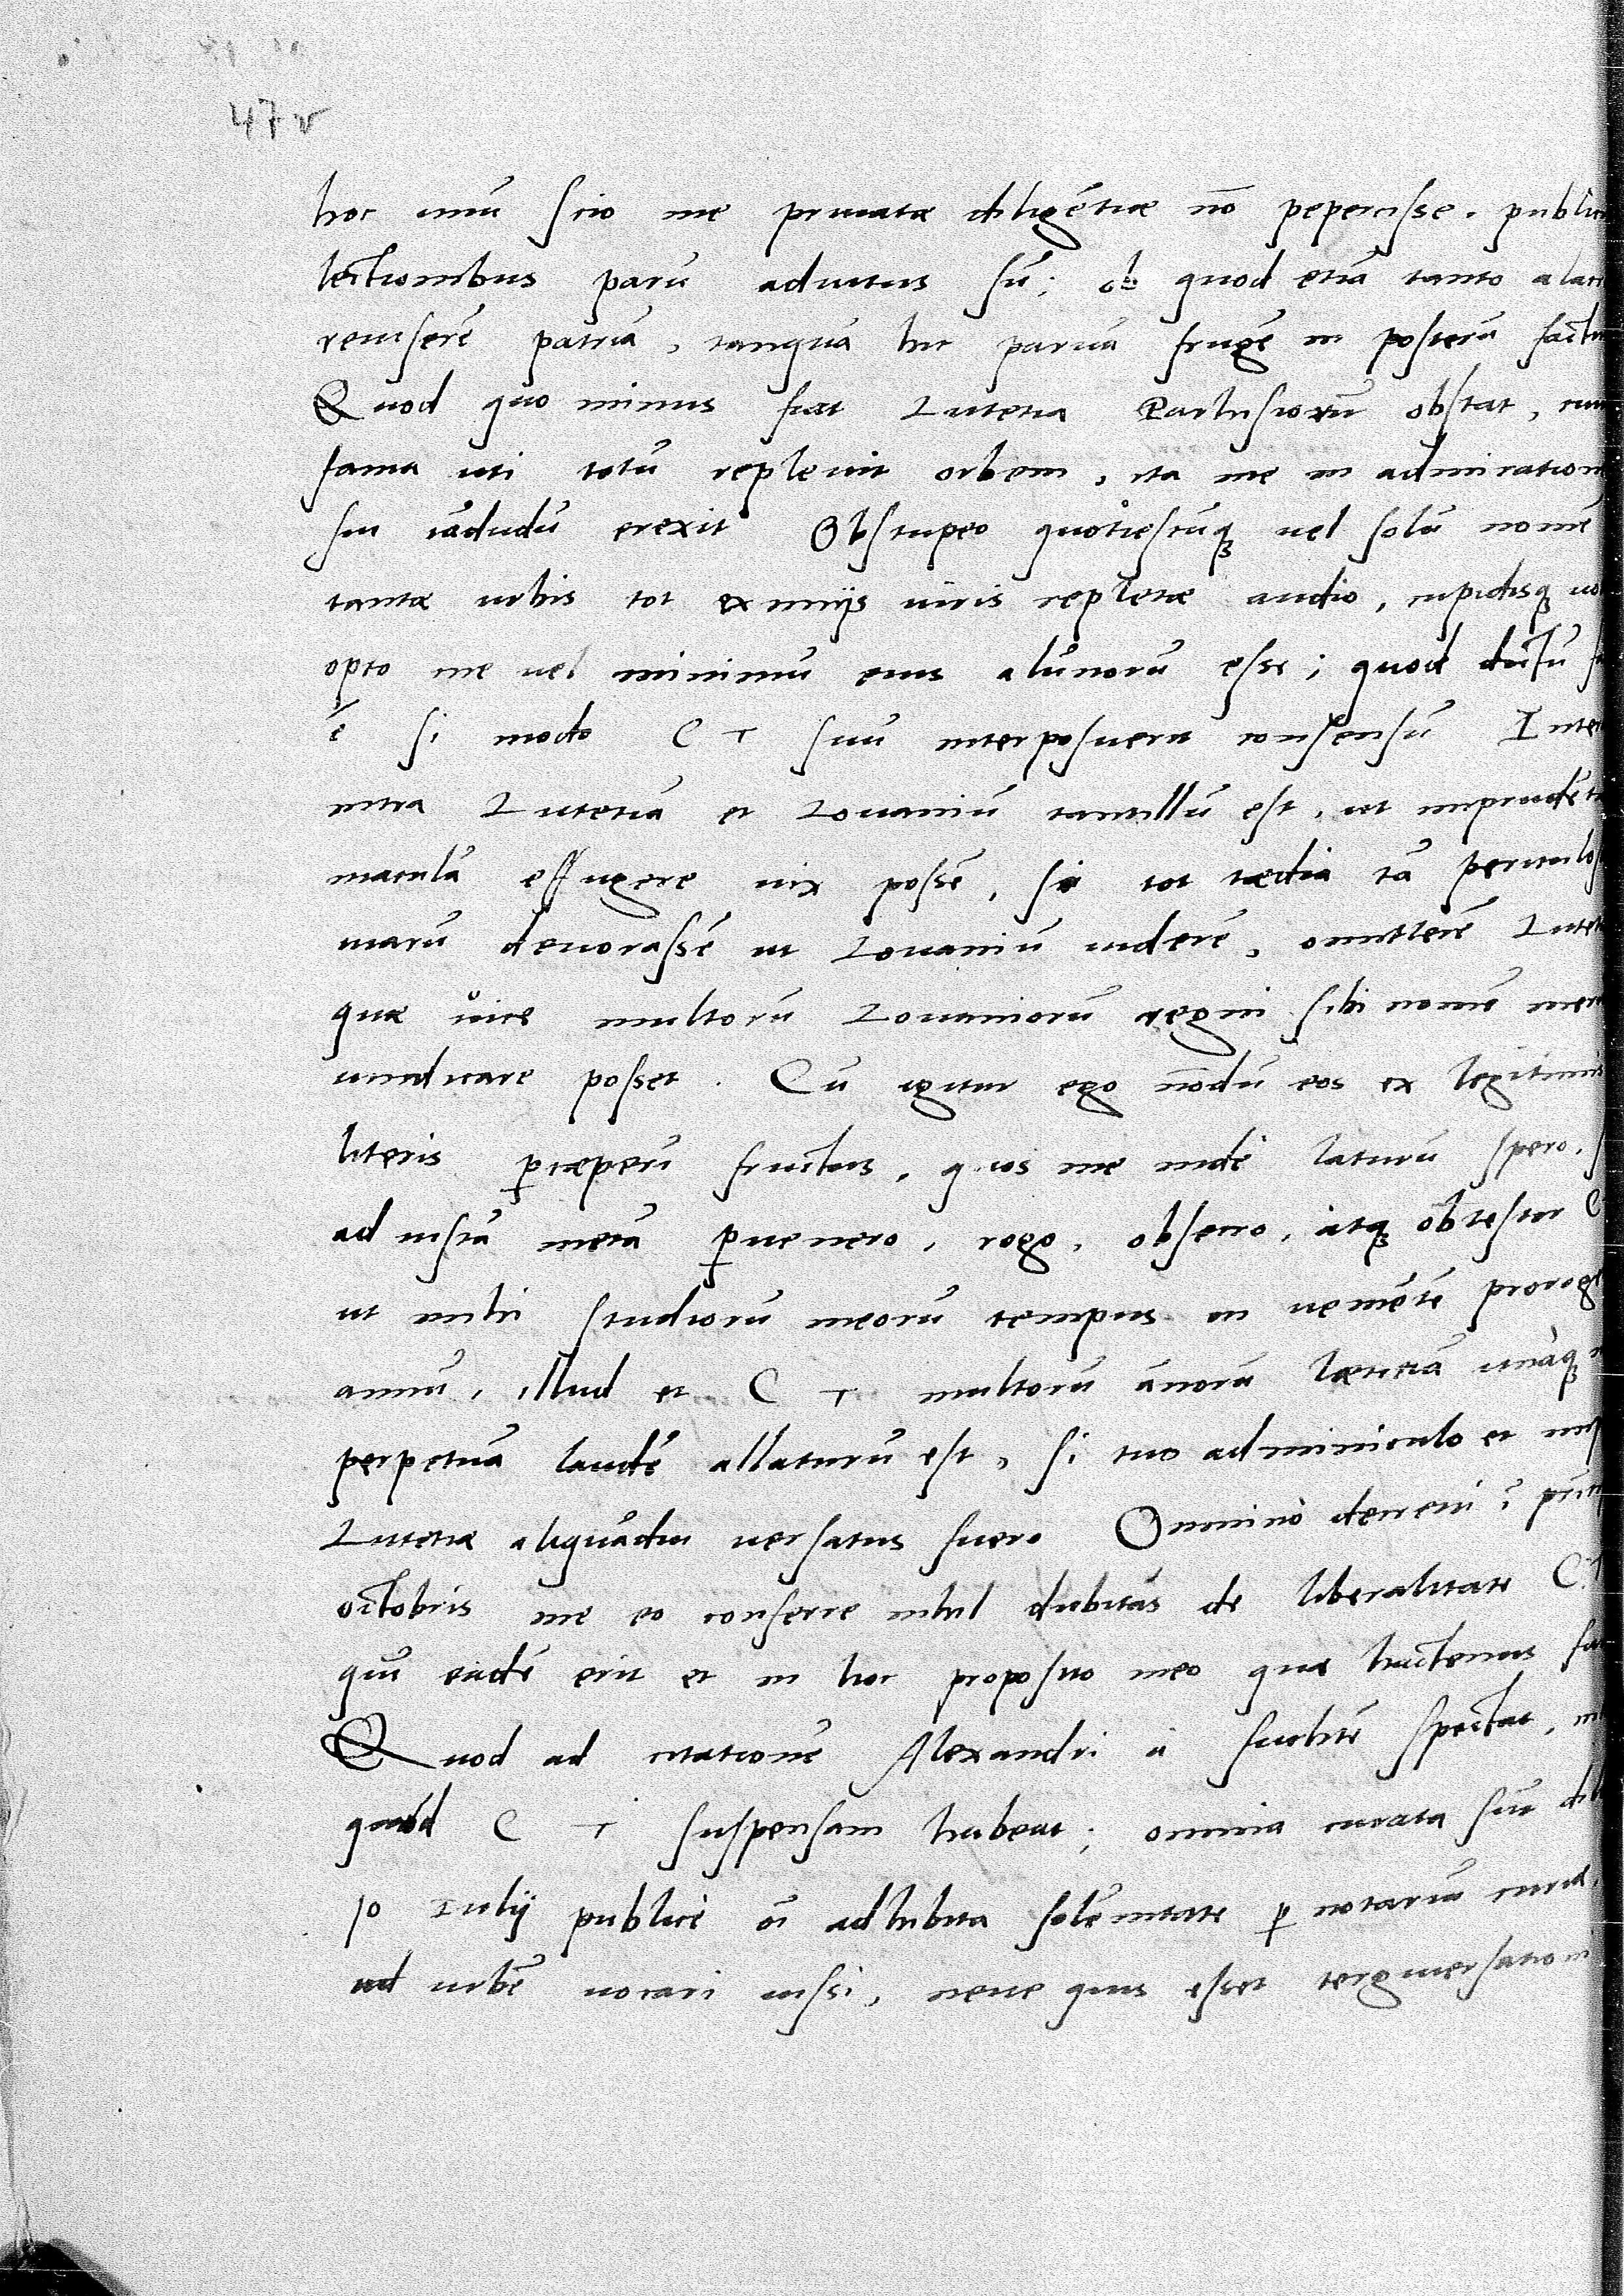 47v
hoc unū scio me priuatæ diligētiæ nō pepercisse. public
lectionibus parū adiutus sū; ob quod etiā tanto alacr
reuiserē patriā, tanquā hic paruā frugē in posterū factu
Quod quo minus fiat Lutetia Parhisiorū obstat, cuiu
fama uti totū repleuit orbem, ita me in admiration
sui iādudū erexit Obstupeo quotiescūq; uel solū nomē
tantæ urbis tot eximijs uiris repletæ audio, cupidisq; uo
opto me uel minimū eius alūnorū esse; quod dictū
ē si modo C T suū interposuerit consensū Inter
intra Lutetiā et Louaniū tantillū est, ut imprudēti
maculā effugere uix possē, si tot tædia tā periculos
uiarū deuorassē ut Louaniū uiderē, omitterē Lutet
quæ iure multorū Louaniorū regni sibi nomē mer
uindicare posset. Cū igitur ego nōdū eos ex legitimis
literis præperū fructus, quos me inde laturū spero, s
ad iustā metā peruenero, rogo, obsecro, atq; obtestor C
ut mihi studiorū meorū tempus in uenientē proroge
annū, illud et C T multorū ānorū lætitiā unàq;
perpetuā laudē allaturū est, si tuo adminiculo et imp
Lutetiæ aliquādiu uersatus fuero Omnino decreui ī princ
octobris me eo conferre nihil dubitās de liberalitate C T
quin eadē erit et in hoc proposito meo quæ hactenus fu
Quod ad citationē Alexandri à Suchtē spectat,
quòd C T suspensam habeat; omnia curata sūt
10 Iulij publicè oī adhibita solēnitate p notariū curiæ
ad urbē uocari iussi, neue quis esset tergiuersationi